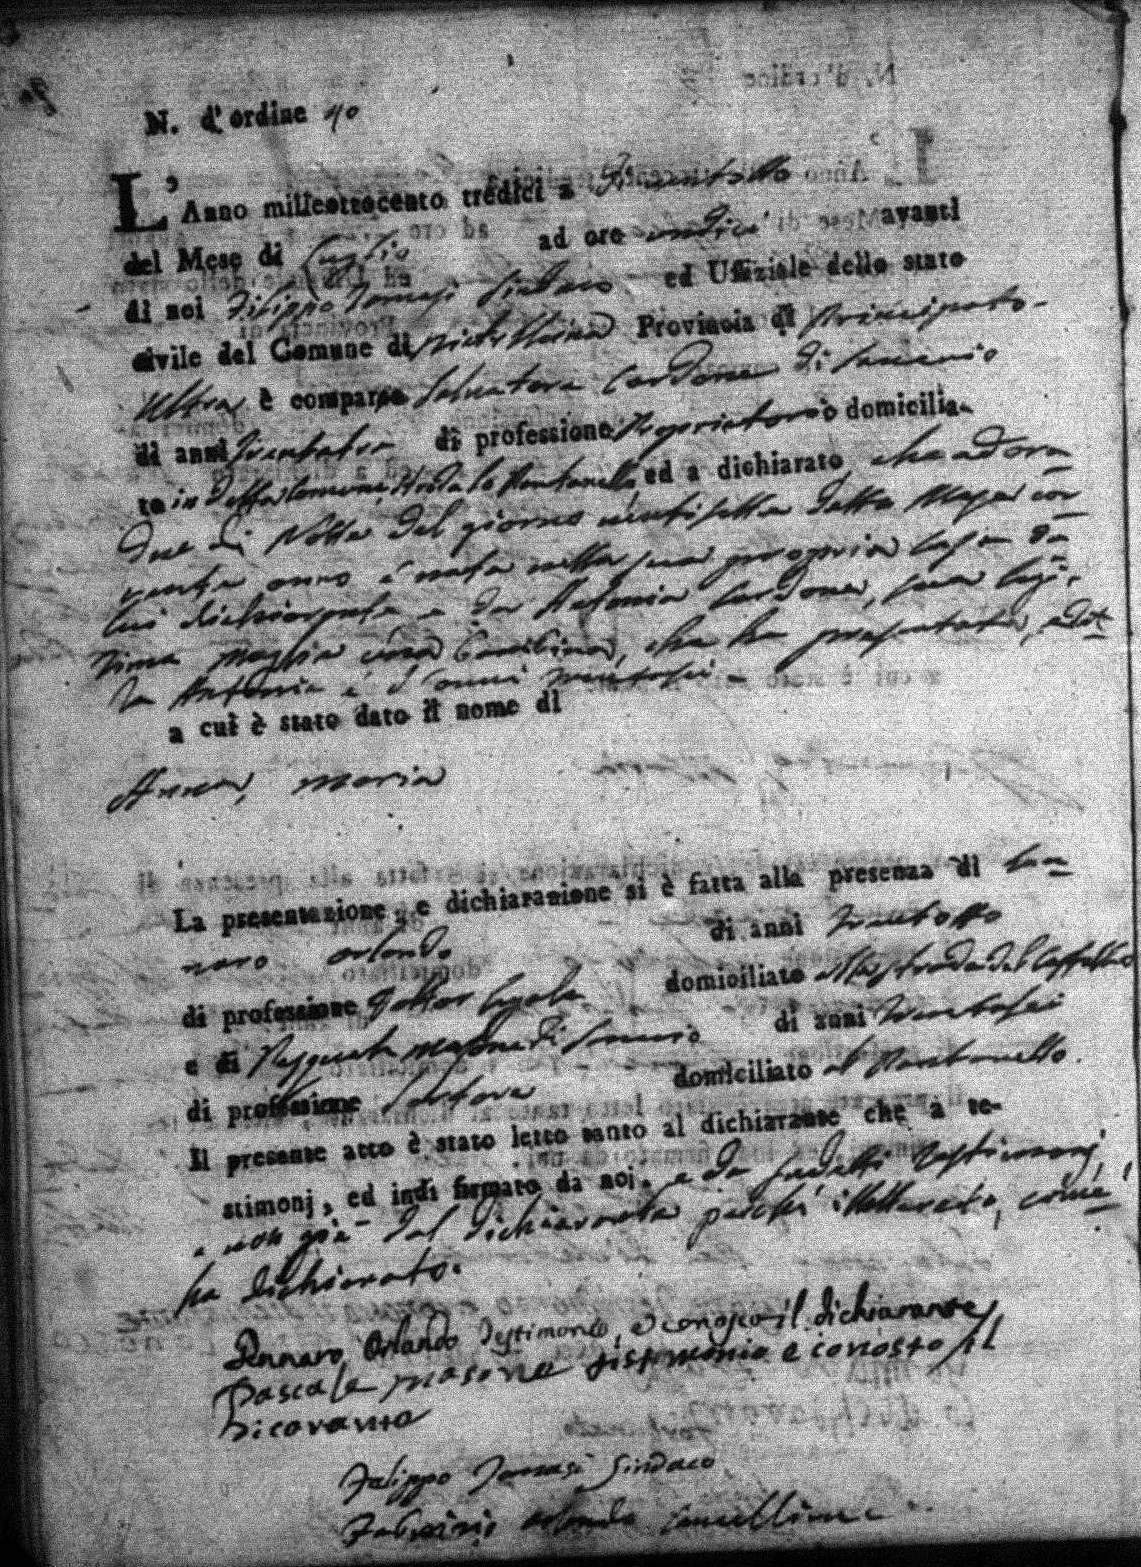 N. d'ordine 40
L'Anno milleottocento tredici a ventotto
del Mese di Luglio ad ore undici avanti
di noi Filippo Tomasi Sindaco ed Uffiziale dello stato
civile del Comune di Provincia di Principato
Ultra è comparso Salvatore Cardone di
di anni di professione domicilia-
to in detto Comune ed a dichiarato, che ad ora
due di Notte del giorno ventisette detto Mese cor
rente anno è nata nella sua propria Casa da
lui dichiarante e da Antonia Cardone, sua legi-
tima Moglie una Bambina, che ha presentata, e det
ta Antonia è d'anni ventisei
a cui è stato dato il nome di
Anna, Maria
La presentazione, e dichiarazione si è fatta alla presenza di Gen
naro Orlando di anni ventotto
di professione domiciliato alla strada del
e di Pasquale Masone di anni
di professione Sartore domiciliato al Pontanello
Il presente atto è stato letto tanto al dichiarante che a te-
stimonj, ed indi firmato da noi, e da sudetti testimonj,
e non già dal dichiarante perché illetterato, come
ha dichiarato.
Gennaro Orlando Testimonio, e conosco il dichiarante
Pascale Masone tistimonio e conosco il
Dicarante
Filippo Tomasi Sindaco
Orlando Cancelliere